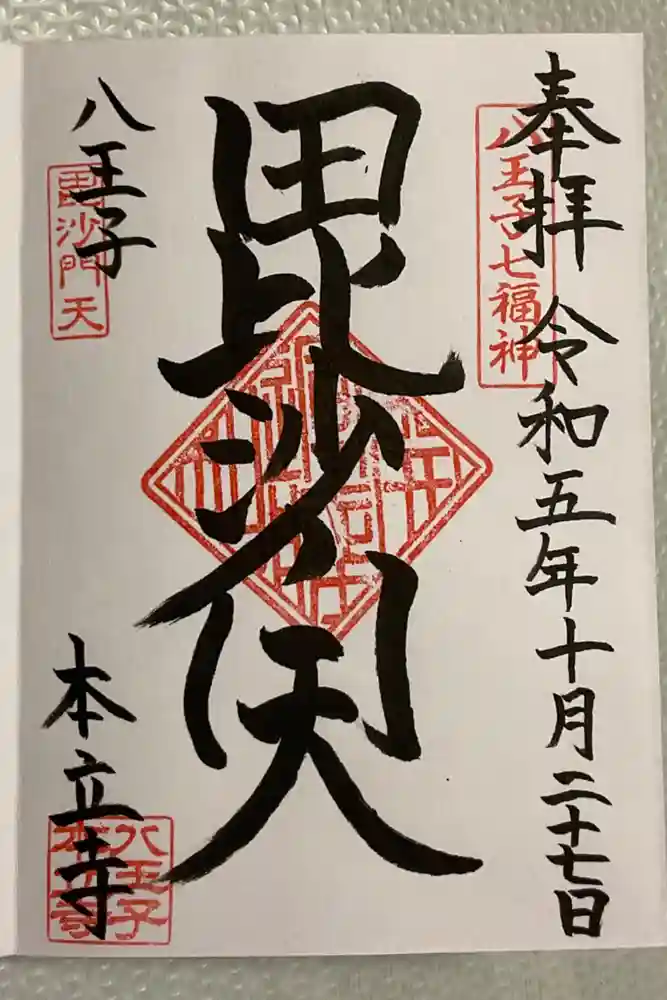 奉拝 令和五年十月二十七日
八王子七福神
毘沙門天
八王子
毘沙門天
本立寺
八王子
本立寺